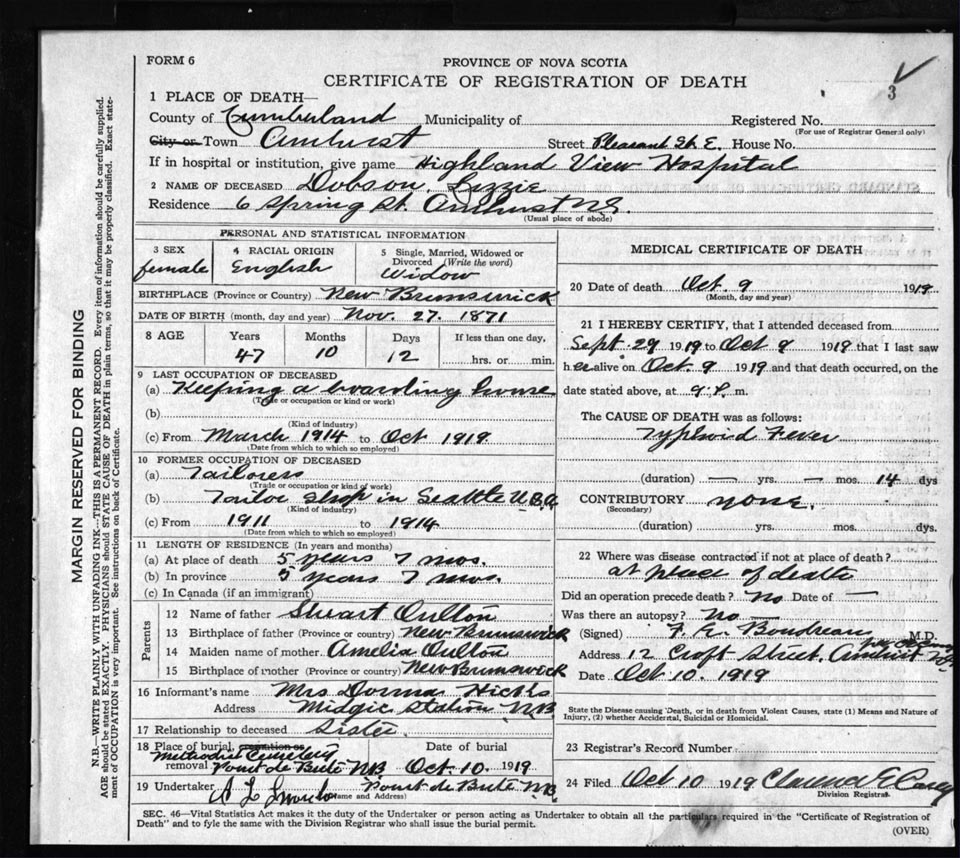 FORM 6
PROVINCE OF NOVA SCOTIA
CERTIFICATE OF REGISTRATION OF DEATH
3
1 PLACE OF DEATH—
County of Cumberland Municipality of Registered No.
(For use of Registrar General only)
City or Town Amherst Street Pleasant St. E. House No.
If in hospital or institution, give name Highland View Hospital
2 NAME OF DECEASED Dobson, Lizzie
Residence 6 Spring St. Amherst N.S.
(Usual place of abode)
PERSONAL AND STATISTICAL INFORMATION
3 SEX 4 RACIAL ORIGIN 5 Single, Married, Widowed or Divorced (Write the word)
female English Widow
BIRTHPLACE (Province or Country) New Brunswick
DATE OF BIRTH (month, day and year) Nov. 27. 1871
8 AGE Years Months Days If less than one day,
47 10 12 hrs. or min.
9 LAST OCCUPATION OF DECEASED
(a) Keeping a boarding house
(Trade or occupation or kind of work)
(b)
(Kind of industry)
(c) From March 1914 to Oct 1919.
(Date from which to which so employed)
10 FORMER OCCUPATION OF DECEASED
(a) Tailoress
(Trade or occupation or kind of work)
(b) Tailor Shop in Seattle U.S.A.
(Kind of industry)
(c) From 1911 to 1914
(Date from which to which so employed)
11 LENGTH OF RESIDENCE (In years and months)
(a) At place of death 5 years 7 mos.
(b) In province 5 years 7 mos.
(c) In Canada (if an immigrant)
Parents
12 Name of father Stuart Oulton
13 Birthplace of father (Province or country) New Brunswick
14 Maiden name of mother Amelia Oulton
15 Birthplace of mother (Province or country) New Brunswick
16 Informant's name Mrs Hicks
Address Midgic Station N.B
17 Relationship to deceased Sister
18 Place of burial, cremation or removal Methodist Cemetery Point de Bute N.B
Date of burial Oct 10. 1919
19 Undertaker Point de Bute N.B
(Name and Address)
MEDICAL CERTIFICATE OF DEATH
20 Date of death Oct. 9 1919
(Month, day and year)
21 I HEREBY CERTIFY, that I attended deceased from
Sept. 29 1919 to Oct 9 1919 that I last saw
her alive on Oct. 9 1919 and that death occurred, on the
date stated above, at 9 P. m.
The CAUSE OF DEATH was as follows:
Typhoid Fever
(duration) — yrs. — mos. 14 dys
CONTRIBUTORY none.
(Secondary)
(duration) yrs. mos. dys.
22 Where was disease contracted if not at place of death?
at place of death
Did an operation precede death? No Date of —
Was there an autopsy? No
(Signed) F. E. Boudreau M.D.
Address 12 Croft Street, Amherst N.S
Date Oct 10. 1919
State the Disease causing Death, or in death from Violent Causes, state (1) Means and Nature of
Injury, (2) whether Accidental, Suicidal or Homicidal.
23 Registrar's Record Number
24 Filed Oct 10 1919
Division Registrar.
SEC. 46—Vital Statistics Act makes it the duty of the Undertaker or person acting as Undertaker to obtain all the particulars required in the "Certificate of Registration of
Death" and to fyle the same with the Division Registrar who shall issue the burial permit.
(OVER)
MARGIN RESERVED FOR BINDING
N.B.—WRITE PLAINLY WITH UNFADING INK—THIS IS A PERMANENT RECORD. Every item of information should be carefully supplied.
AGE should be stated EXACTLY. PHYSICIANS should STATE CAUSE OF DEATH in plain terms, so that it may be properly classified. Exact state-
ment of OCCUPATION is very important. See instructions on back of Certificate.